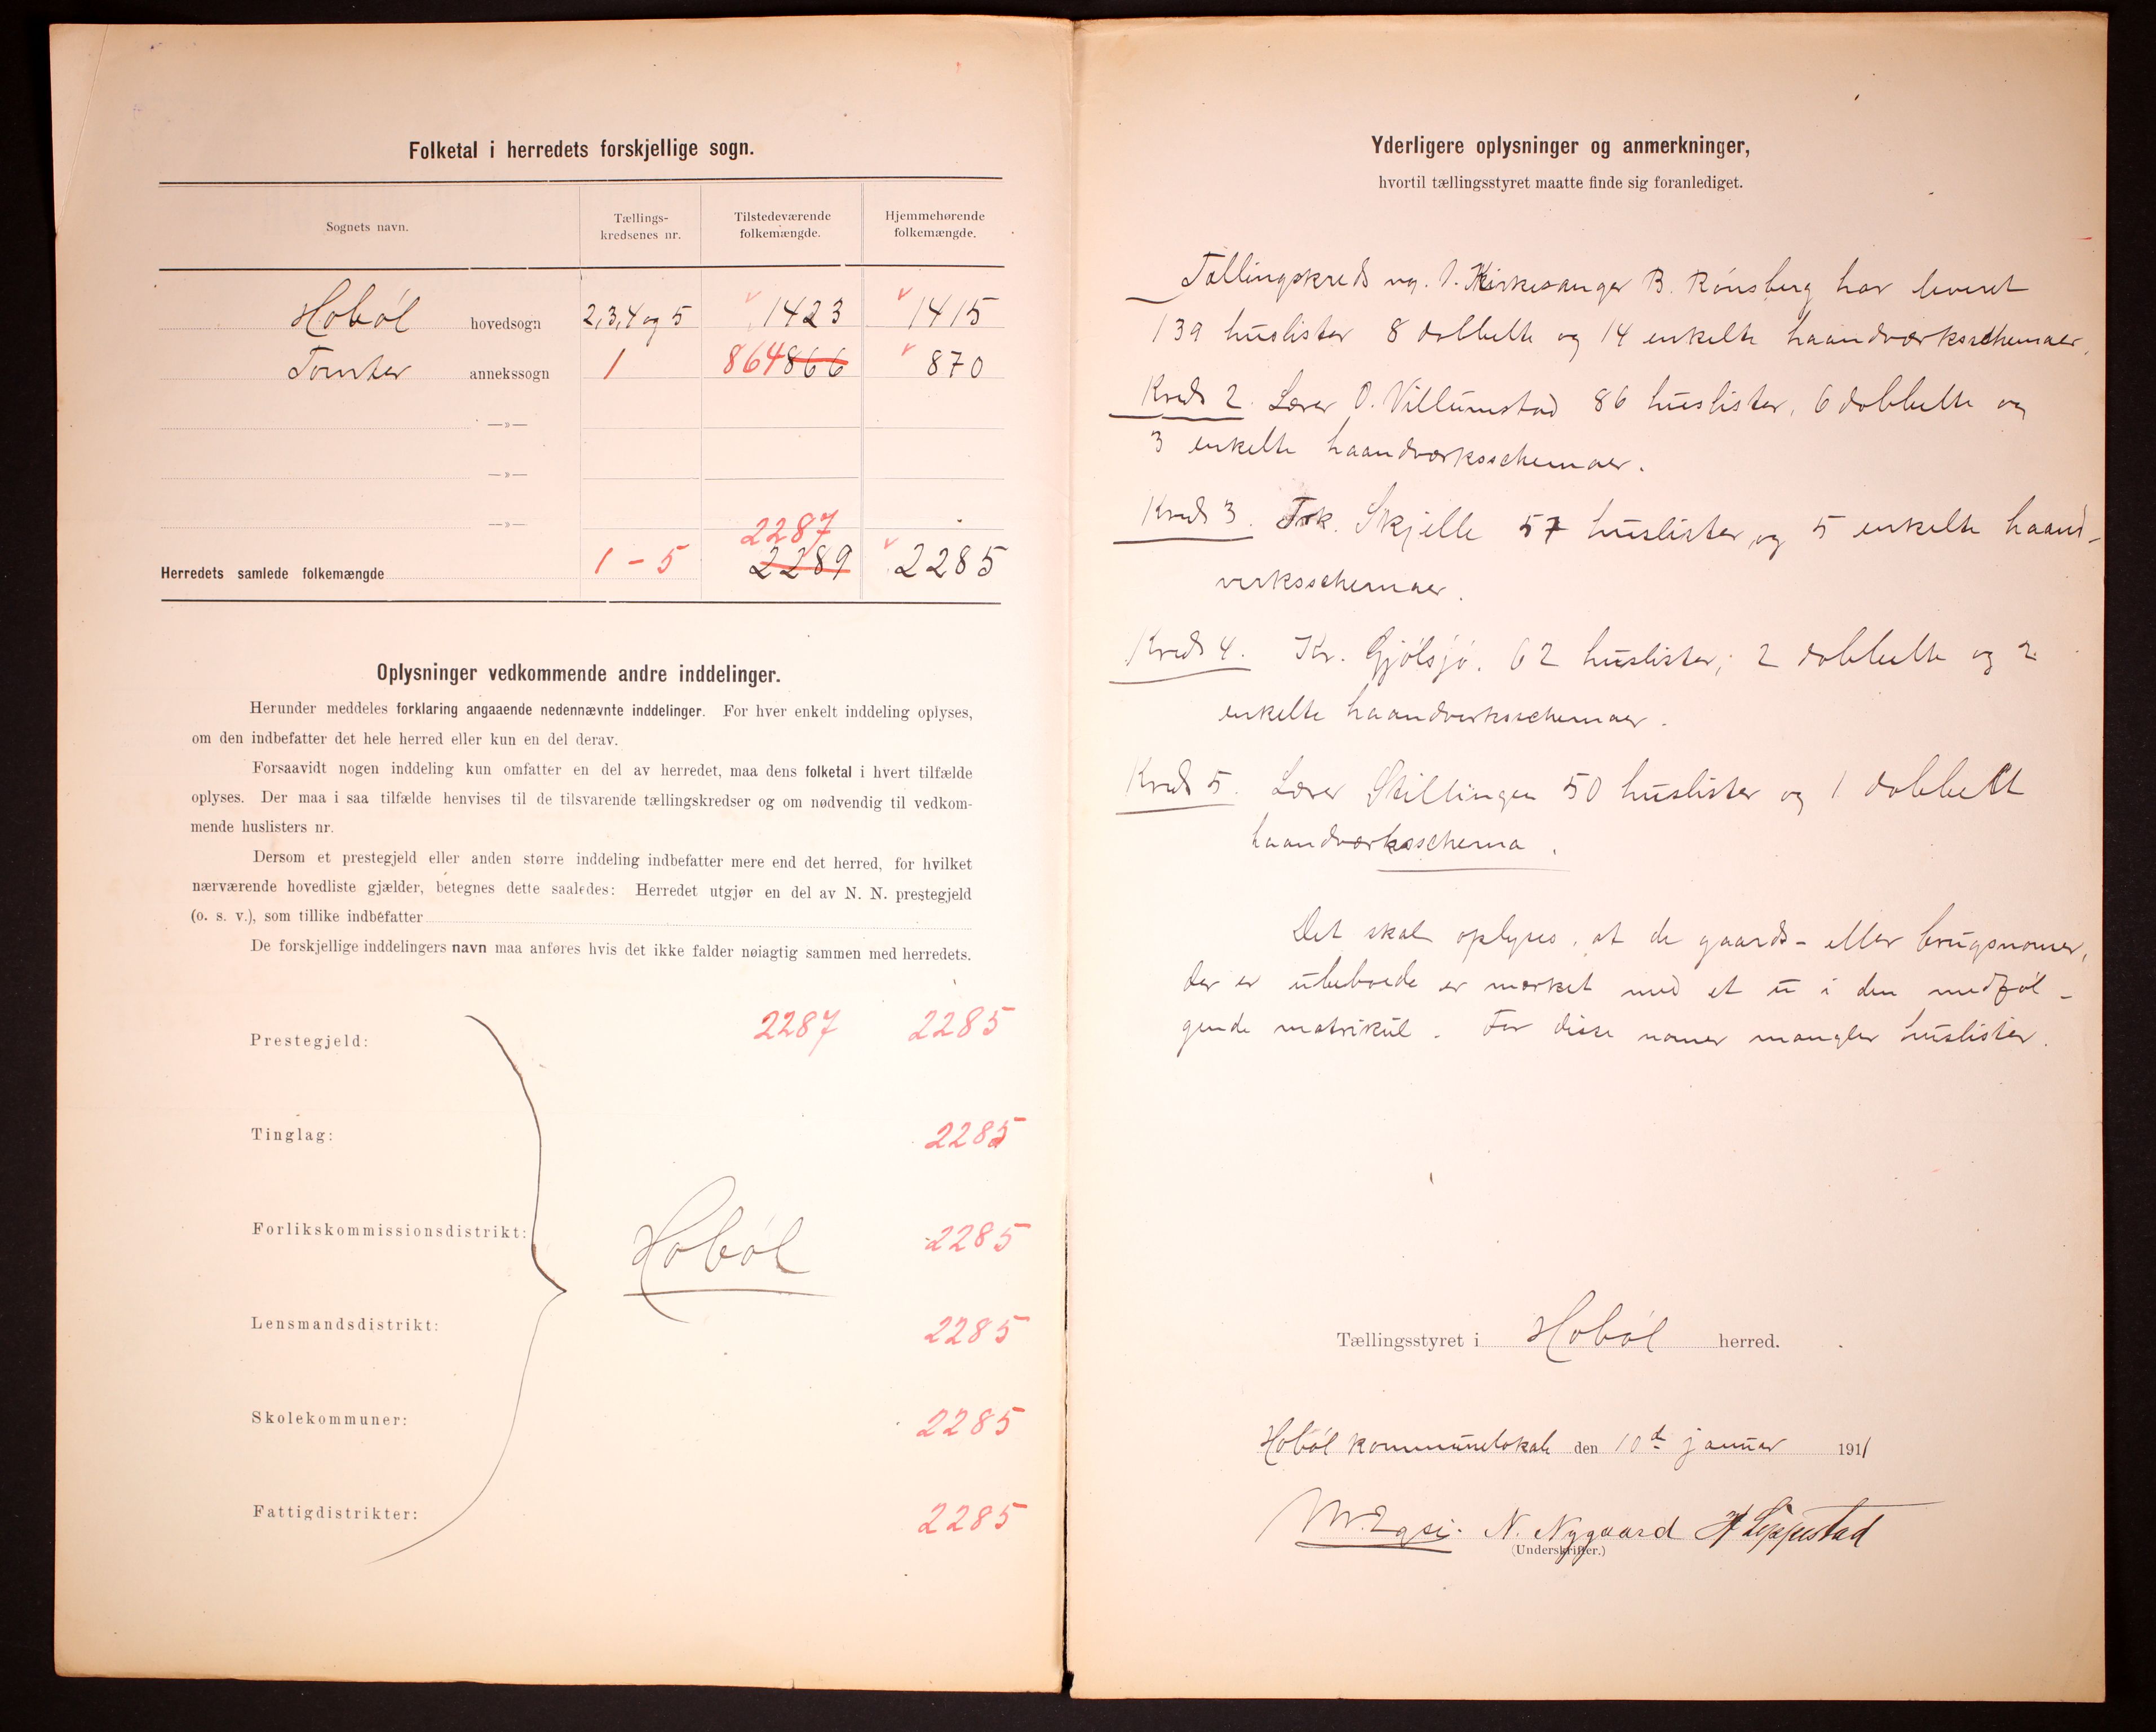 Folketal i herredets forskjellige sogn.
Sognets navn. Tællings-kredsenes nr. Tilstedeværende folkemængde. Hjemmehørende folkemængde.
Hobøl hovedsogn 2,3,4 og 5 1423 1415
Tomter annekssogn 1 864 866 870
—»—
—»—
—»—
2287
Herredets samlede folkemængde 1 - 5 2289 2285
Oplysninger vedkommende andre inddelinger.
Herunder meddeles forklaring angaaende nedennævnte inddelinger. For hver enkelt inddeling oplyses,
om den indbefatter det hele herred eller kun en del derav.
Forsaavidt nogen inddeling kun omfatter en del av herredet, maa dens folketal i hvert tilfælde
oplyses. Der maa i saa tilfælde henvises til de tilsvarende tællingskredser og om nødvendig til vedkom-
mende huslisters nr.
Dersom et prestegjeld eller anden større inddeling indbefatter mere end det herred, for hvilket
nærværende hovedliste gjælder, betegnes dette saaledes: Herredet utgjør en del av N. N. prestegjeld
(o. s. v.), som tillike indbefatter
De forskjellige inddelingers navn maa anføres hvis det ikke falder nøiagtig sammen med herredets.
Prestegjeld: 2287 2285
Tinglag: 2285
Forlikskommissionsdistrikt: 2285
Hobøl
Lensmandsdistrikt: 2285
Skolekommuner: 2285
Fattigdistrikter: 2285
Yderligere oplysninger og anmerkninger,
hvortil tællingsstyret maatte finde sig foranlediget.
Tællingskreds nr. 1. Kirkesanger B. Rønsberg har leveret
139 huslister 8 dobbelte og 14 enkelte haandværksschemaer.
Kreds 2. Lærer O. Villumstad 86 huslister, 6 dobbelte og
3 enkelte haandværksschemaer.
Kreds 3. Frk. Skjelle 57 huslister og 5 enkelte haand-
verksschemaer.
Kreds 4. Kr. Gjølsjø. 62 huslister; 2 dobbelte og 2
enkelte haandverksschemaer.
Kreds 5. Lærer Stillingen 50 huslister og 1 dobbelt
haandværksschema.
Det skal oplyses, at de gaards- eller brugsnomer,
der er ubeboede er mærket med et u i den medføl-
gende matrikul. For disse nomer mangler huslister.
Tællingsstyret i Hobøl herred.
Hobøl kommunelokale den 10de januar 1911
N. Nygaard H Loppestad
(Underskrifter.)